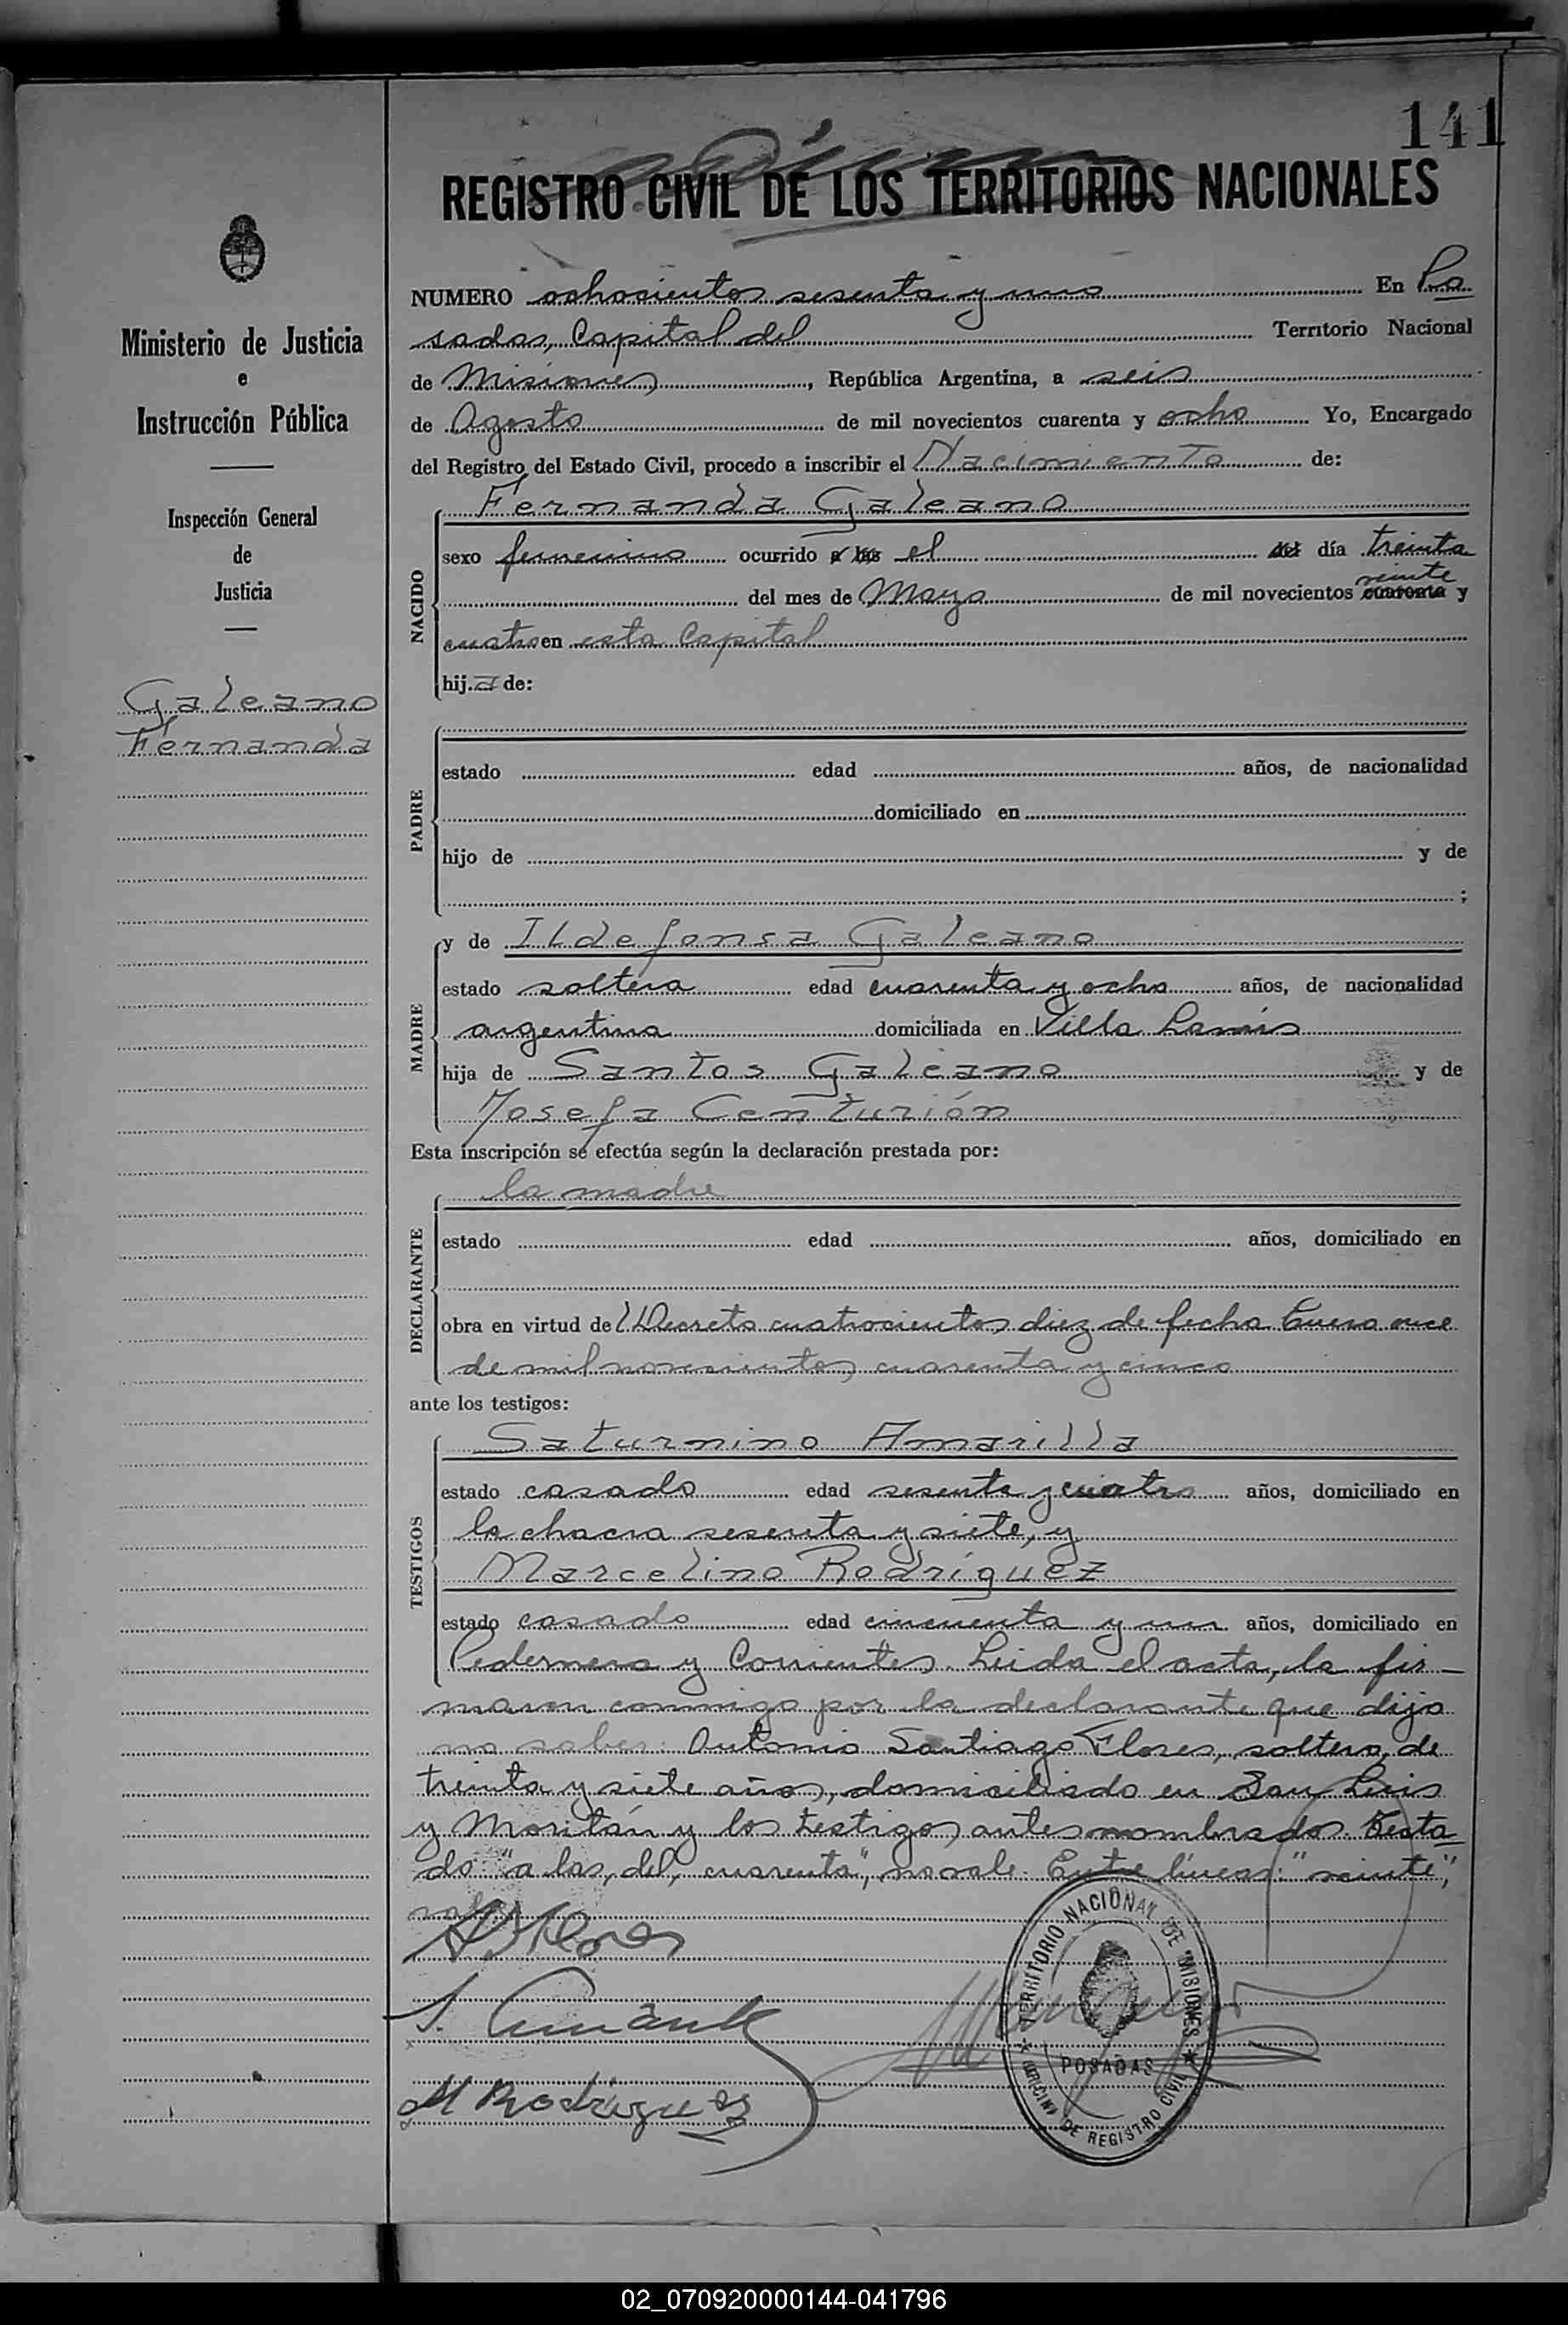 141
REGISTRO CIVIL DE LOS TERRITORIOS NACIONALES
Ministerio de Justicia
e
Instrucción Pública
Inspección General
de
Justicia
Galeano
Fernanda
NUMERO ochocientos sesenta y uno En Po
sadas, Capital del Territorio Nacional
de Misiones, República Argentina, a seis
de Agosto de mil novecientos cuarenta y ocho Yo, Encargado
del Registro del Estado Civil, procedo a inscribir el Nacimiento de:
NACIDO
Fernanda Galeano
sexo femenino ocurrido a las el del día treinta
veinte
del mes de Mayo de mil novecientos cuarenta y
cuatro en esta Capital
hija de:
PADRE
estado edad años, de nacionalidad
domiciliado en
hijo de y de
;
MADRE
y de Ildefonsa Galeano
estado soltera edad cuarenta y ocho años, de nacionalidad
argentina domiciliada en Villa Lanús
hija de Santos Galeano y de
Josefa Centurión
Esta inscripción se efectúa según la declaración prestada por:
DECLARANTE
la madre
estado edad años, domiciliado en
obra en virtud del Decreto cuatrocientos diez de fecha Enero once
de mil novecientos cuarenta y cinco
ante los testigos:
TESTIGOS
Saturnino Amarilla
estado casado edad sesenta y cuatro años, domiciliado en
la chacra sesenta y siete, y
Marcelino Rodríguez
estado casado edad cincuenta y un años, domiciliado en
Pedernera y Corrientes. Leida el acta, la fir-
maron conmigo por la declarante que dijo
no saber: Antonio Santiago Flores, soltero, de
treinta y siete años, domiciliado en San Luis
y Moritán y los testigos antes nombrados. Testa
do: "a las, del, cuarenta", no vale. Entre líneas: "veinte",
M Rodriguez
TERRITORIO NACIONAL DE MISIONES
POSADAS
OFICINA DE REGISTRO CIVIL
02_070920000144-041796